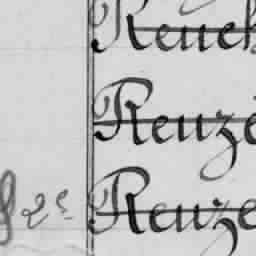 Reuch
Reuzé
2e Reuze